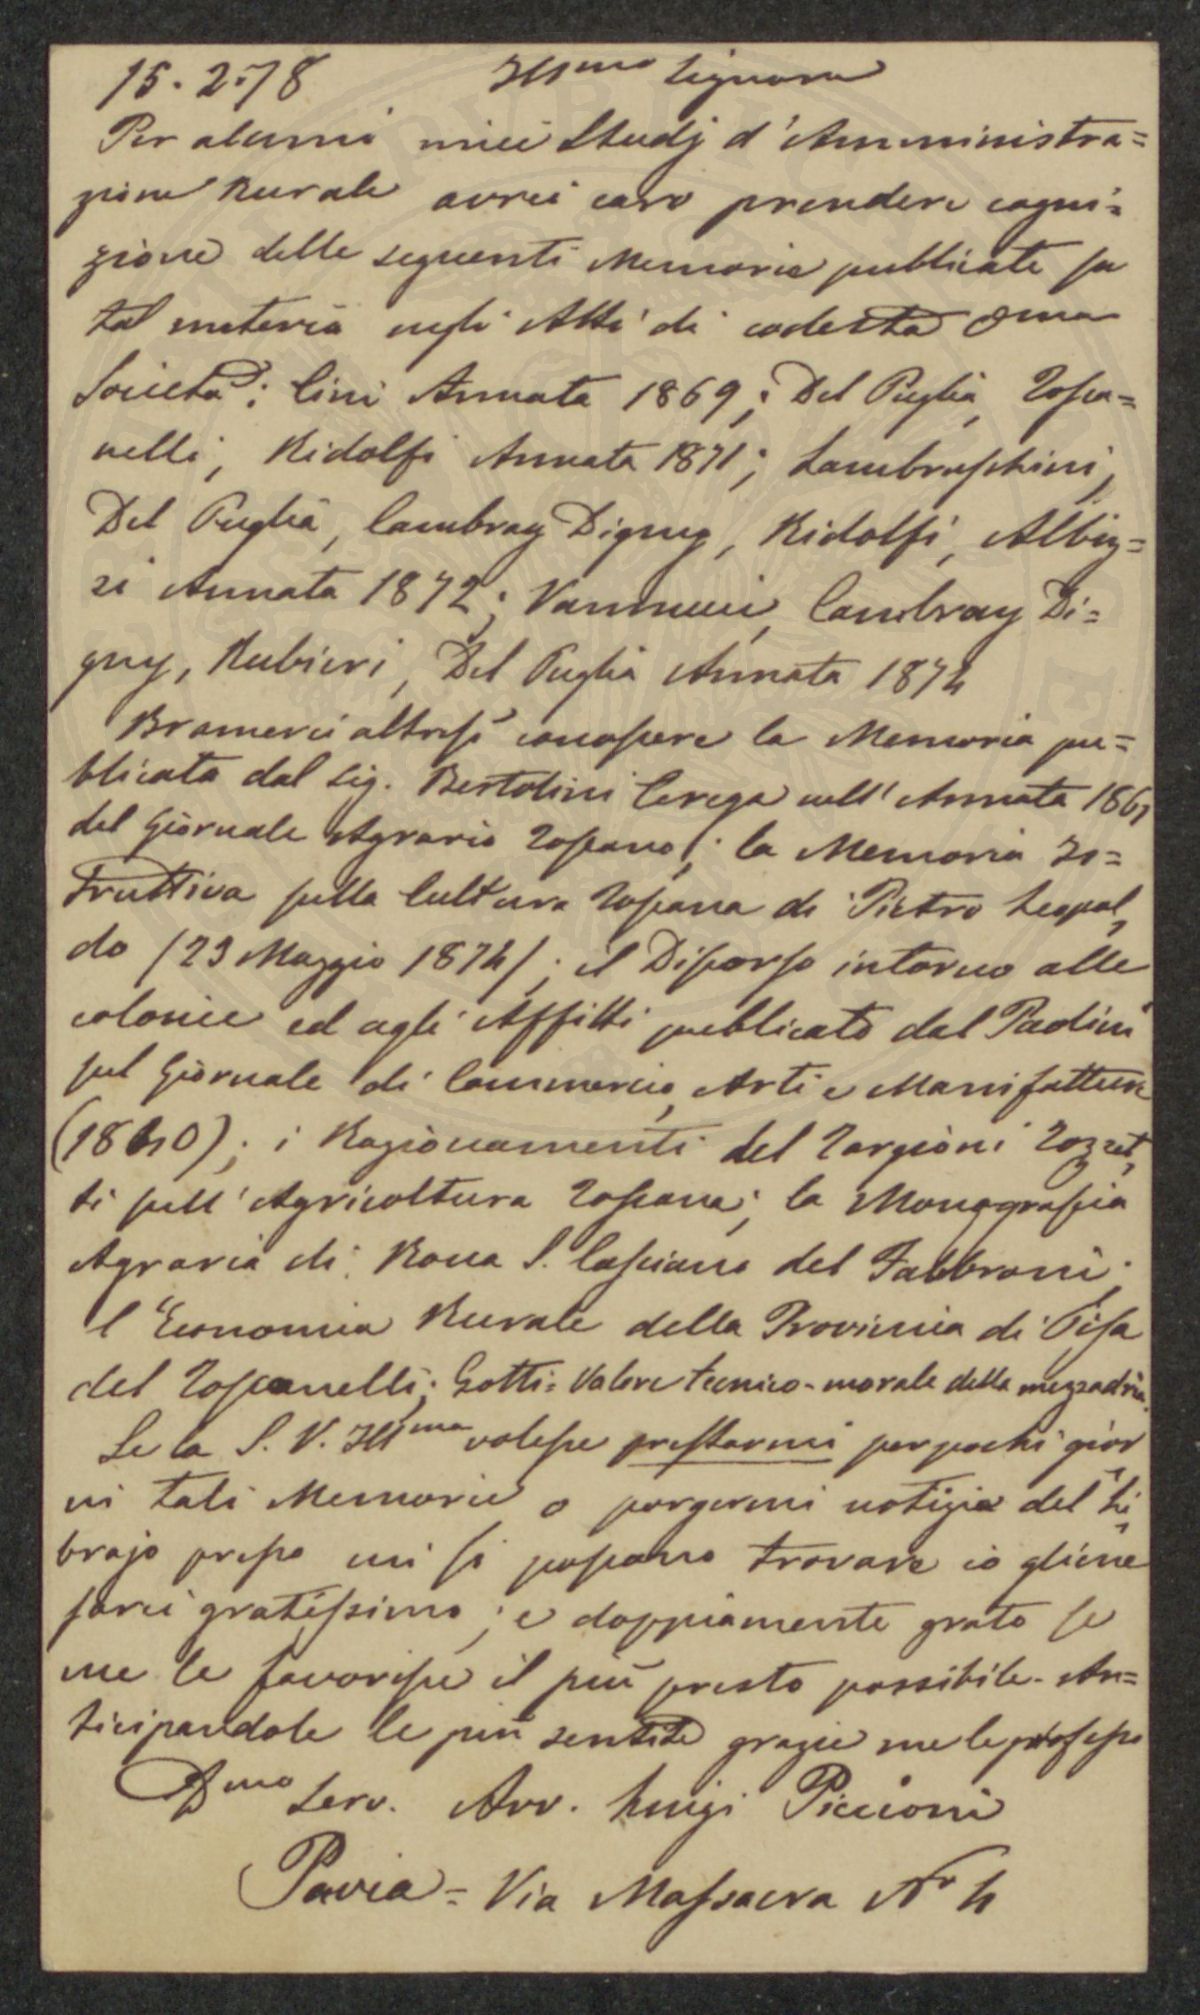 15. 2. 78 Illmo Signore
Per alcuni miei Studj d'Amministra=
zione Rurale avrei caro prendere cogni=
zione delle seguenti Memorie pubblicate su
tal materia negli Atti di codesta Onma
Società: Cini Annata 1869; Del Puglia, Tosca=
nelli, Ridolfi Annata 1871; Lambruschini,
Del Puglia, Cambray Digny, Ridolfi, Albiz=
zi Annata 1872; Vannucci, Cambray Di=
gny, Rubieri, Del Puglia Annata 1874
Bramerei altresì conoscere la Memoria pu=
blicata dal Sig. Bertolini Cerega nell'Annata 1861
del Giornale Agrario Toscano; la Memoria Is=
truttiva sulla Cultura Toscana di Pietro Leopol„
do (23 Maggio 1874); il Discorso intorno alle
colonie ed agli Affitti pubblicato dal Paolini
sul Giornale di Commercio, Arti e Manifatture
(1840); i Ragionamenti del Targioni Tozzet„
ti sull'Agricoltura Toscana; la Monografia
Agraria di Rocca S. Casciano del Fabbroni;
l'Economia Rurale della Provincia di Pisa
del Toscanelli; Gotti = Valore tecnico-morale della mezzadria.
Se la S. V. Illma volesse prestarmi per pochi gior„
ni tali Memorie o porgermi notizia del Li„
brajo presso cui si possano trovare io gliene
sarei gratissimo; e doppiamente grato se
me le favorisse il più presto possibile. An=
ticipandole le più sentite grazie me le professo
Dmo Serv. Avv. Luigi Piccioni
Pavia = Via Massacra No 4